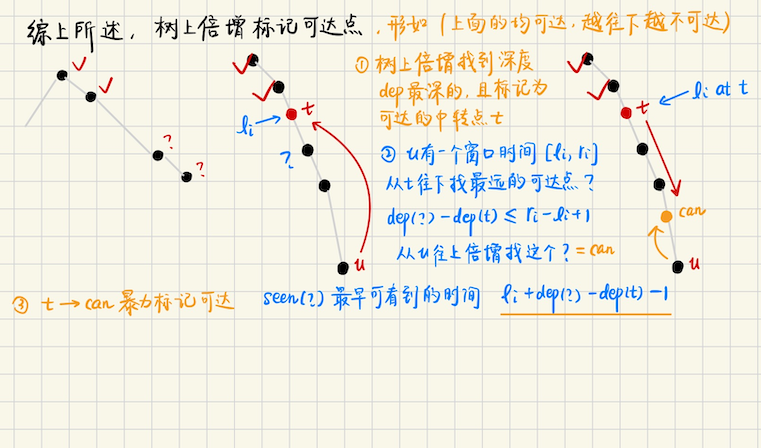 综上所述，树上倍增标记可达点，形如（上面的均可达，越往下越不可达）
① 树上倍增找到深度
dep最深的，且标记为
可达的中转点 t
t
li
?
u
?
?
li at t
t
can
u
② u有一个窗口时间 [li, ri]
从t往下找最远的可达点？
dep(?) - dep(t) ≤ ri - li + 1
从u往上倍增找这个？= can
③ t → can 暴力标记可达
seen(?) 最早可看到的时间 li + dep(?) - dep(t) - 1